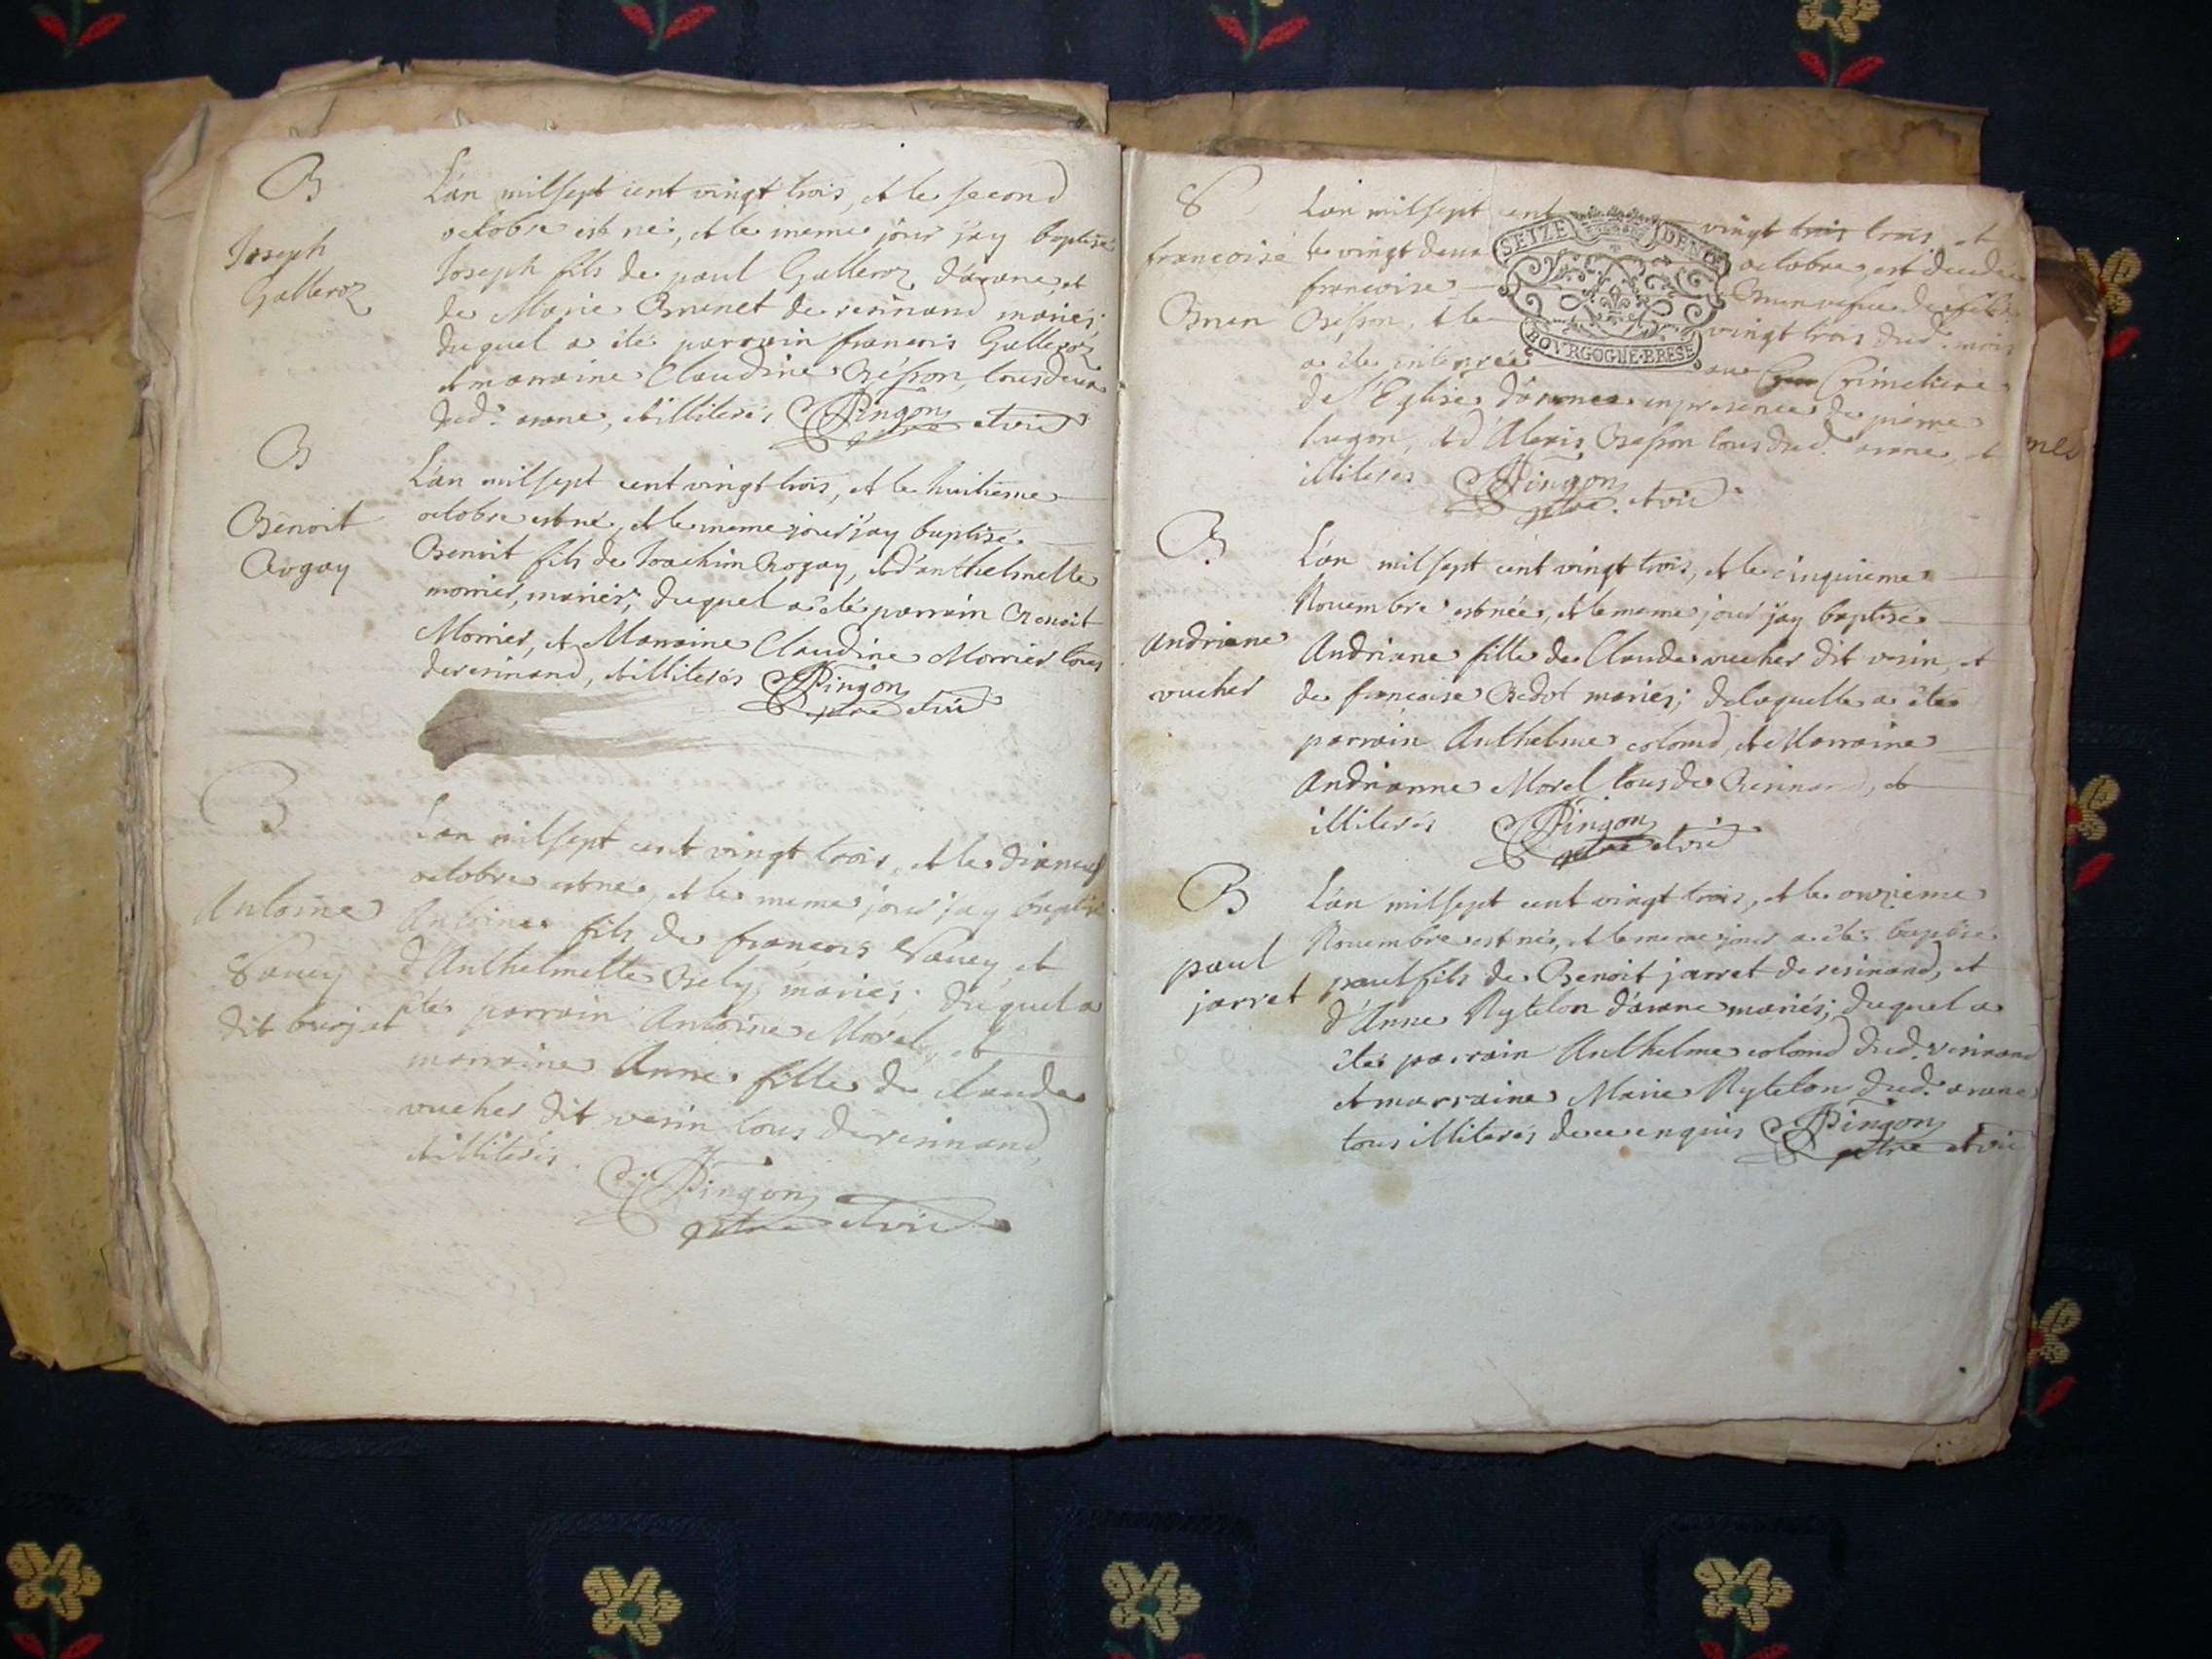 B
Joseph
Galleroz
L'an mil sept cent vingt trois, et le second
octobre est né, et le meme jour j'ay baptisé
Joseph fils de paul Galleroz d'arane, et
de Marie Brunet de resinand mariés;
duquel a été parrain francois Galleroz
et marraine Claudine Besson, tous deux
dud. arane, et illiterés Pingon
ptre et vic
B
Benoit
Rogay
L'an mil sept cent vingt trois, et le huitieme
octobre est né, et le meme jour j'ay baptisé
Benoit fils de Joachim Rogay, et d'anthelmette
morrier, mariés; duquel a été parrain Benoit
Morrier, et Marraine Claudine Morrier tous
de resinand, et illiterés Pingon
ptre et vic
B
Antoine
Savey
dit burjet
L'an mil sept cent vingt trois, et le dixneuf
octobre est né, et le meme jour j'ay baptisé
Antoine fils de françois Savey, et
d'Anthelmette Bely, mariés; duquel a
été parrain Antoine Morel, et
marraine Anne fille de claude
vucher dit verin tous de resinand,
et illiterés.
Pingon
ptre et vic
S
francoise
Brun
L'an mil sept cent vingt trois trois, et
le vingt deux octobre, est decedée
francoise Brun vefue de
Besson, et le vingt trois dud. mois
a été enterrée au Cimetiere
de l'Eglise d'arane en presence de pierre
hugon, et d'Alexis Besson tous dud. arane, et
illiterés Pingon
ptre et vic
SEIZE DENIERS
BOVRGOGNE·BRESE
B
andriane
vucher
L'an mil sept cent vingt trois, et le cinquieme
Nouembre est née, et le meme jour j'ay baptisé
Andriane fille de Claude vucher dit verin, et
de francoise Bedot mariés; de laquelle a été
parrain Anthelme colomd, et Marraine
Andrianne Morel tous de Resinand, et
illiterés Pingon
ptre et vic
B
paul
jarret
L'an mil sept cent vingt trois, et le onzieme
Nouembre est né, et le meme jour a été baptisé
paul fils de Benoit jarret de resinand, et
d'Anne Rytelon d'arane mariés; duquel a
été parrain Anthelme colomd dud. resinand
et marraine Marie Rytelon dud. arane
tous illiterés de ce enquis Pingon
ptre et vic